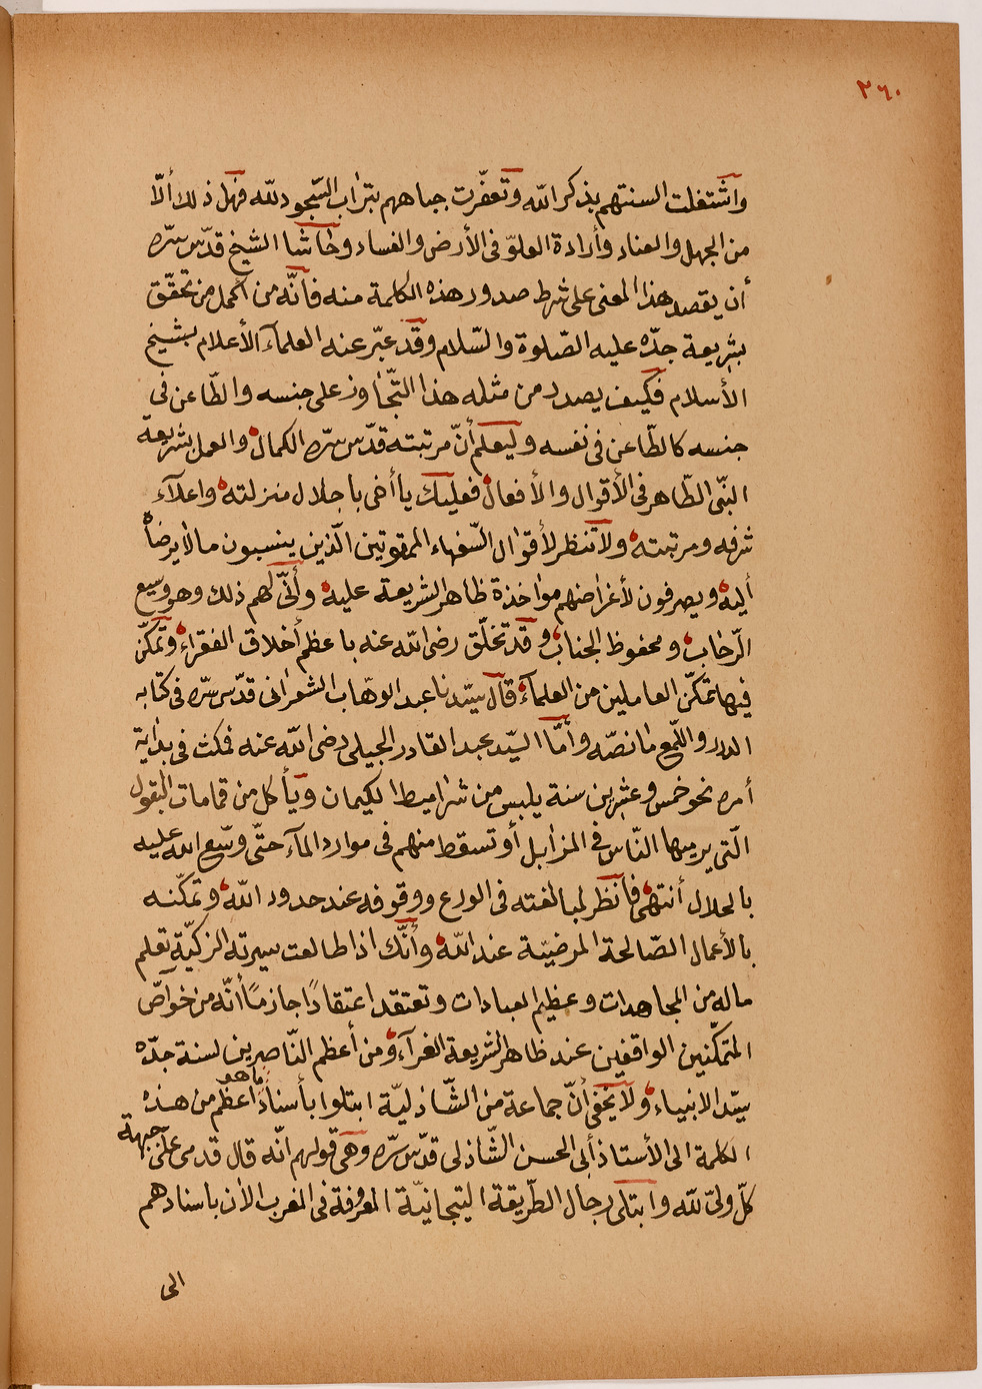 ٣٦٠
واشتغلت السنتهم بذكر الله وتعفّرت جباههم بتراب السّجود لله فهل ذلك ألّا
من الجهل والعناد وأرادة العلوّ فى الأرض والفساد وحاشا الشيخ قدّس سرّه
أن يقصد هذا المعنى على شرط صدور هذه الكلمة منه فأنّه من اكمل من تحقّق
بشريعة جدّه عليه الصّلوة والسّلام وقد عبّر عنه العلمآء الأعلام بشيخ
الأسلام فكيف يصدر من مثله هذا التّجاوز على جنسه والطّاعن فى
جنسه كالطّاعن فى نفسه وليعلم أنّ مرتبته قدّس سرّه الكمال والعمل بشريعة
النبّى الطّاهر فى الأقوال والأفعال فعليك يا أخى باجلال منزلته واعلآء
شرفه ومرتبته ولا تنظر لأقوال السّفهاء الممقوتين الّذين ينسبون مالا يرضاه
أليه ويصرفون لأغراضهم مؤاخذة ظاهر الشريعة عليه وأنّى لهم ذلك وهو وسيع
الرّحاب ومحفوظ الجناب وقد تخلّق رضى الله عنه باعظم أخلاق الفقراء وتمكّن
فيها تمكّن العاملين من العلمآء قال سيّدنا عبد الوهّاب الشعرانى قدّس سرّه فى كتابه
الدرر واللّمع ما نصّه وأمّا السيّد عبد القادر الجيلى رضى الله عنه فمكث فى بداية
أمره نحو خمس وعشرين سنة يلبس من شراميط الكيمان ويأكل من قمامات البقول
الّتى يرميها النّاس فى المزابل أو تسقط منهم فى موارد المآء حتّى وسّع الله عليه
بالحلال أنتهى فأنظر لمبالغته فى الورع ووقوفه عند حدود الله وتمكّنه
بالأعمال الصّالحة المرضيّة عند الله وأنّك اذا طالعت سيرته الزكيّة تعلم
ماله من المجاهدات وعظيم العبادات وتعتقد اعتقادًا جازمًا أنّه من خواصّ
المتمكّنين الواقفين عند ظاهر الشريعة الغرآء ومن أعظم النّاصرين لسنة جدّه
سيّد الانبياء ولا يخفى أنّ جماعة من الشّاذليّة ابتلوا بأسناد ما هو اعظم من هذه
الكلمة الى الأستاذ أبى الحسن الشّاذلى قدّس سرّه وهى قولهم انّه قال قدمى على جبهة
كلّ ولىّ لله وابتلى رجال الطّريقة التيجانيّة المعروفة فى المغرب الان باسنادهم
الى